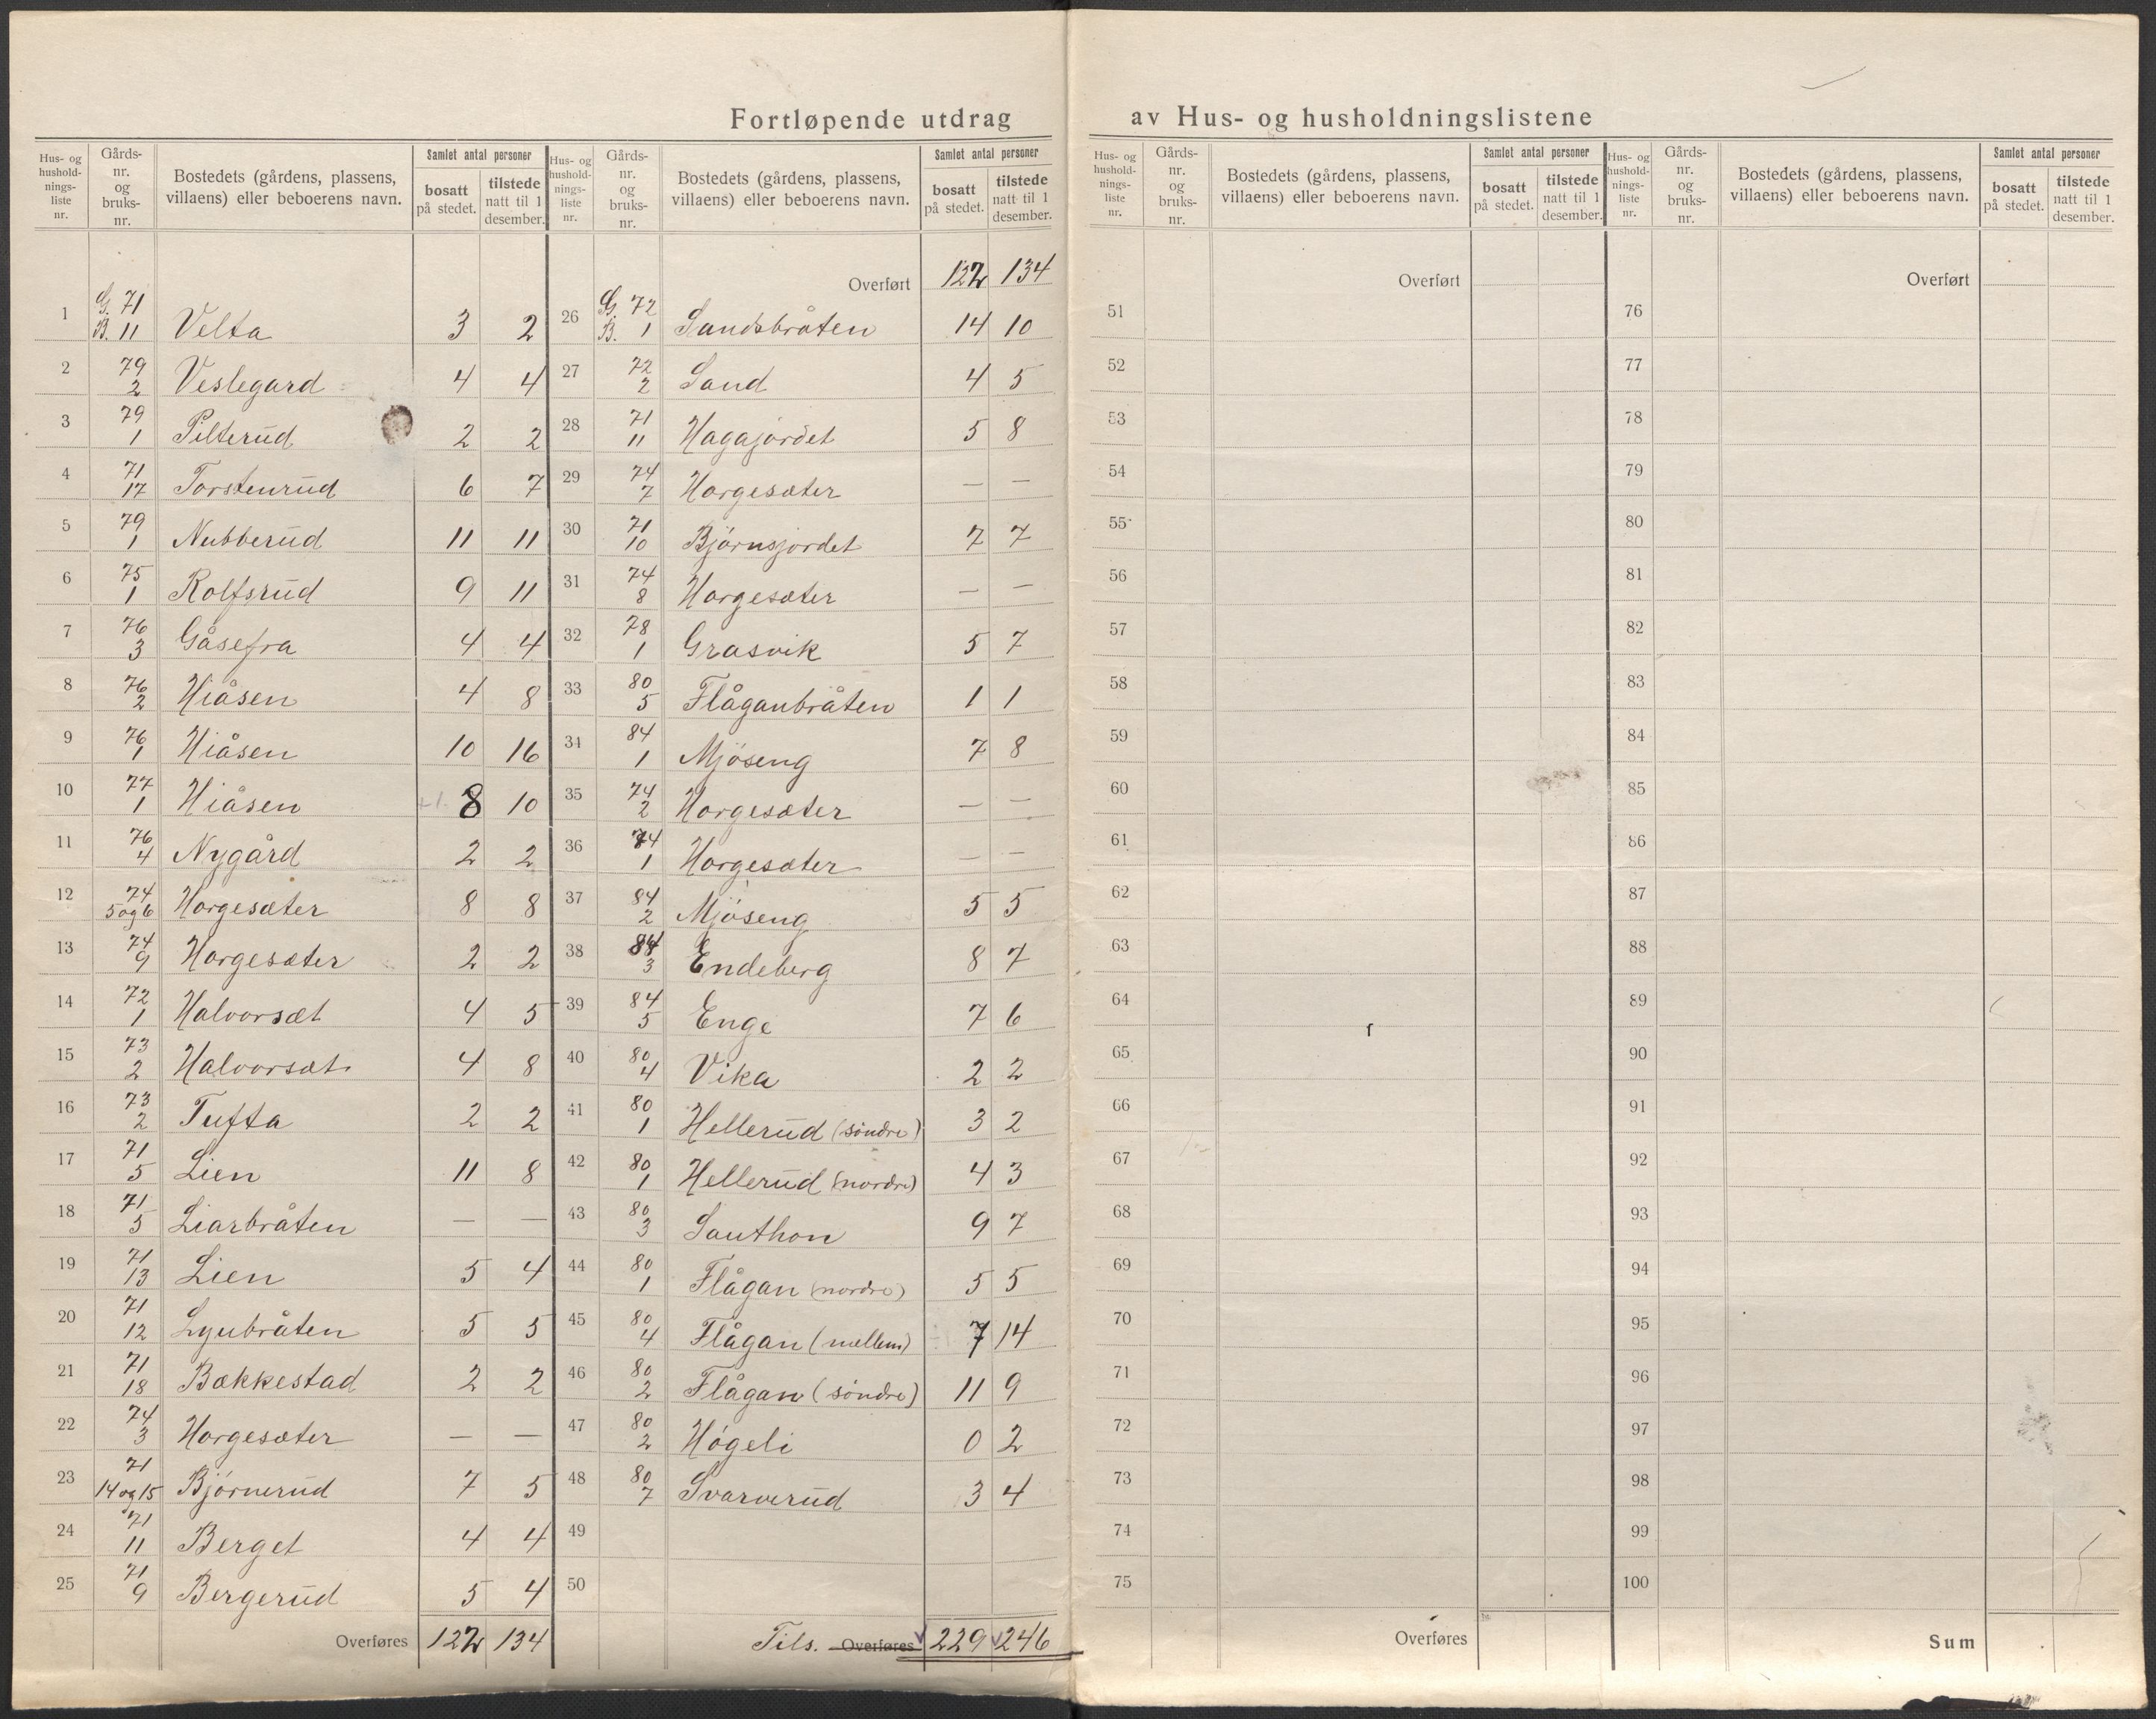 Fortløpende utdrag av Hus- og husholdningslistene
Hus- og hushold-nings-liste nr. Gårds-nr. og bruks-nr. Bostedets (gårdens, plassens, villaens) eller beboerens navn. Samlet antal personer bosatt på stedet. tilstede natt til 1 desember.
1 G. 71 B. 11 Velta 3 2
2 79 2 Veslegard 4 4
3 79 1 Pilterud 2 2
4 71 17 Torstenrud 6 7
5 79 1 Nubberud 11 11
6 75 1 Rolfsrud 9 11
7 76 3 Gåsefra 4 4
8 76 2 Hiåsen 4 8
9 76 1 Hiåsen 10 16
10 77 1 Hiåsen +1 8 10
11 76 4 Nygård 2 2
12 74 5 og 6 Horgesæter 8 8
13 74 9 Horgesæter 2 2
14 72 1 Halvorsæt 4 5
15 73 2 Halvorsæt 4 8
16 73 2 Tufta 2 2
17 71 5 Lien 11 8
18 71 5 Liarbråten — —
19 71 13 Lien 5 4
20 71 12 Lynbråten 5 5
21 71 18 Bækkestad 2 2
22 74 3 Horgesæter — —
23 71 14 og 15 Bjørnerud 7 5
24 71 11 Berget 4 4
25 71 9 Bergerud 5 4
Overføres 122 134
Hus- og hushold-nings-liste nr. Gårds-nr. og bruks-nr. Bostedets (gårdens, plassens, villaens) eller beboerens navn. Samlet antal personer bosatt på stedet. tilstede natt til 1 desember.
Overført 122 134
26 G. 72 B. 1 Sandsbråten 14 10
27 72 2 Sand 4 5
28 71 11 Hagajordet 5 8
29 74 7 Horgesæter — —
30 71 10 Bjørnsjordet 7 7
31 74 8 Horgesæter — —
32 78 1 Grasvik 5 7
33 80 5 Flåganbråten 1 1
34 84 1 Mjøseng 7 8
35 74 2 Horgesæter — —
36 74 1 Horgesæter — —
37 84 2 Mjøseng 5 5
38 84 3 Endeberg 8 7
39 84 5 Enge 7 6
40 80 4 Vika 2 2
41 80 1 Hellerud (søndre) 3 2
42 80 1 Hellerud (nordre) 4 3
43 80 3 Sauthon 9 7
44 80 1 Flågan (nordre) 5 5
45 80 4 Flågan (mellem) 7 14
46 80 2 Flågan (søndre) 11 9
47 80 2 Høgeli 0 2
48 80 7 Svarverud 3 4
49
50
Tils. Overføres 229 246
Hus- og hushold-nings-liste nr. Gårds-nr. og bruks-nr. Bostedets (gårdens, plassens, villaens) eller beboerens navn. Samlet antal personer bosatt på stedet. tilstede natt til 1 desember.
Overført
51
52
53
54
55
56
57
58
59
60
61
62
63
64
65
66
67
68
69
70
71
72
73
74
75
Overføres
Hus- og hushold-nings-liste nr. Gårds-nr. og bruks-nr. Bostedets (gårdens, plassens, villaens) eller beboerens navn. Samlet antal personer bosatt på stedet. tilstede natt til 1 desember.
Overført
76
77
78
79
80
81
82
83
84
85
86
87
88
89
90
91
92
93
94
95
96
97
98
99
100
Sum